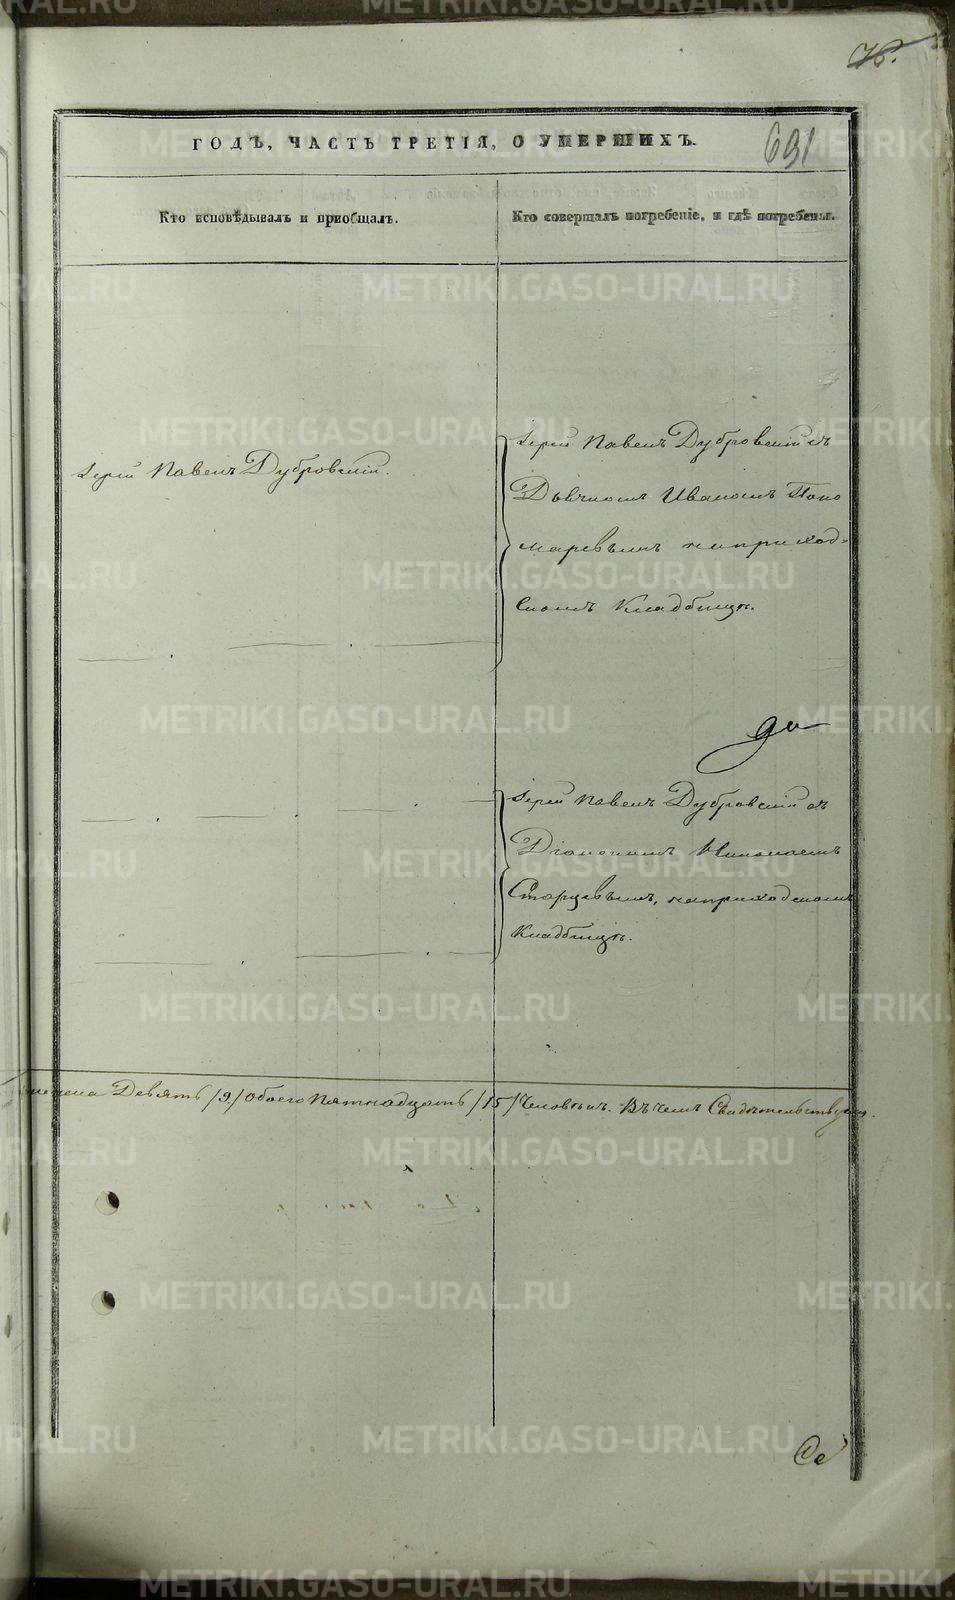 691
ГОДЪ, ЧАСТЬ ТРЕТІЯ, О УМЕРШИХЪ.
Кто исповѣдывалъ и пріобщалъ.
Кто совершалъ погребеніе, и гдѣ погребены.
Іерей Павелъ Дубровскій.
Іерей Павелъ Дубровскій съ
Дьячкомъ Иваномъ Поно
маревымъ на приход-
скомъ Кладбищѣ.
Іерей Павелъ Дубровскій съ
Діакономъ Николаемъ
Старцевымъ, на приходскомъ
Кладбищѣ.
Девять /9/ Обоего Пятнадцать /15/ Человѣкъ. Въ чемъ Свидѣтельствуемъ.
METRIKI.GASO-URAL.RU